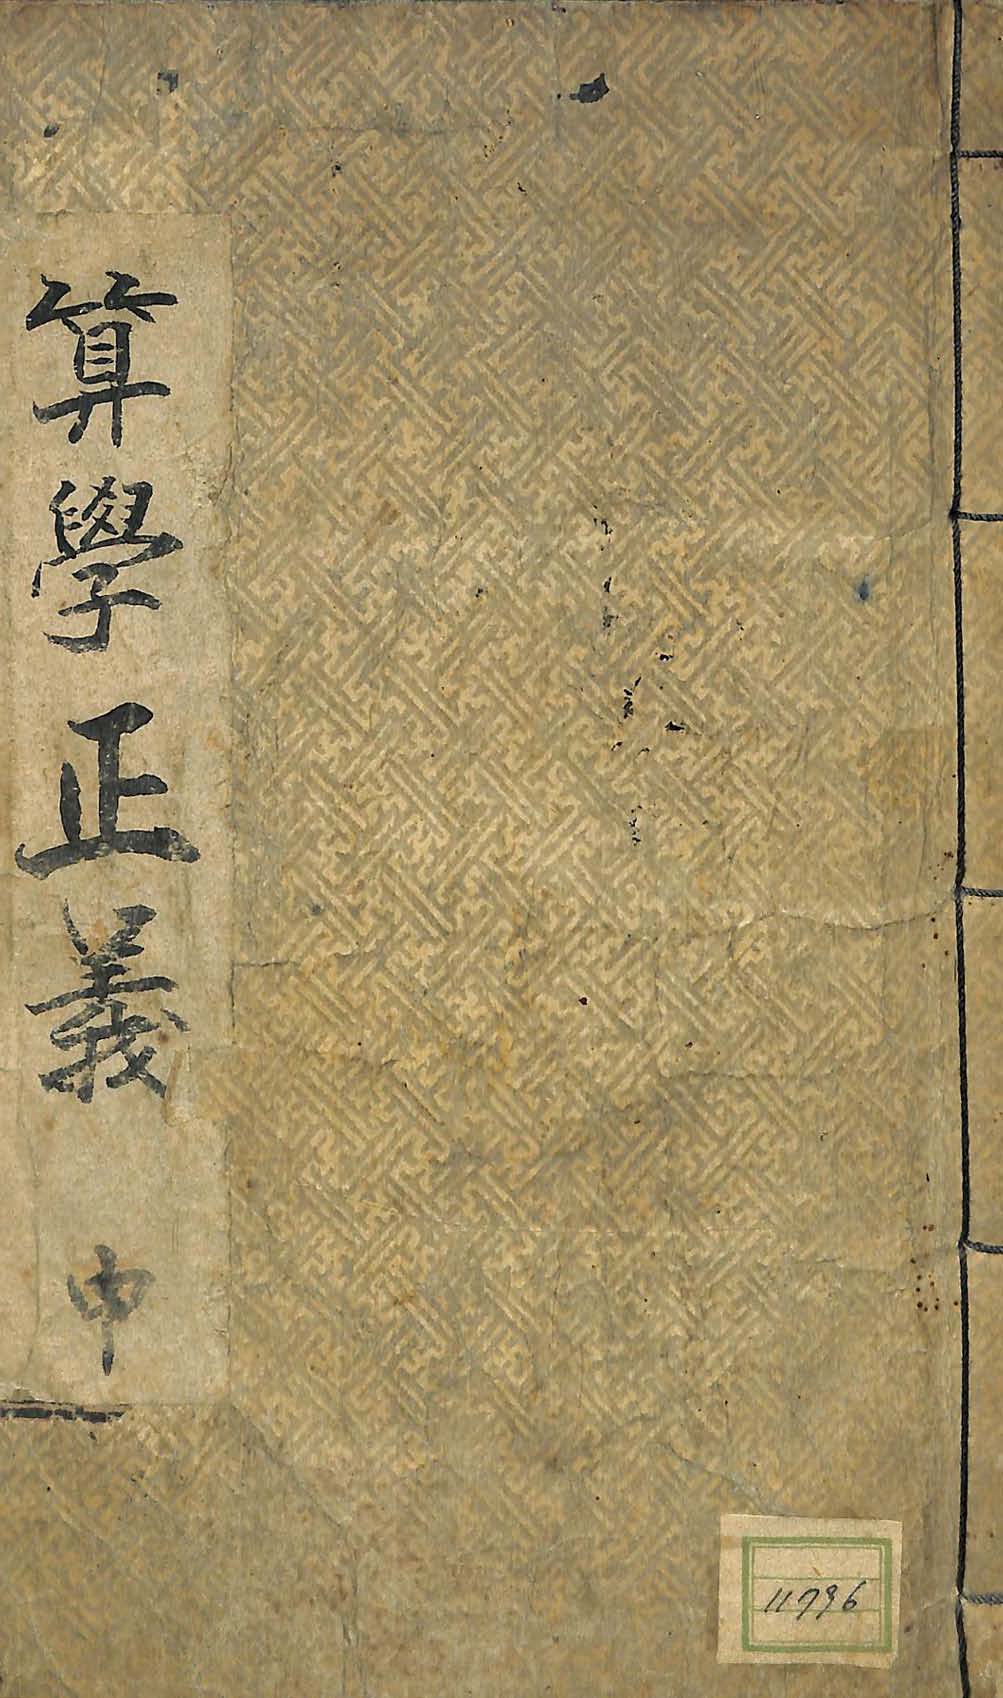 算學正義 申
11796